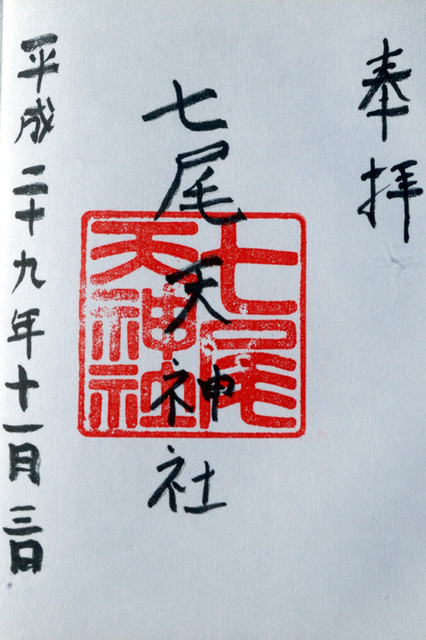 奉拝
七尾天神社
七尾
天神社
平成二十九年十一月三日